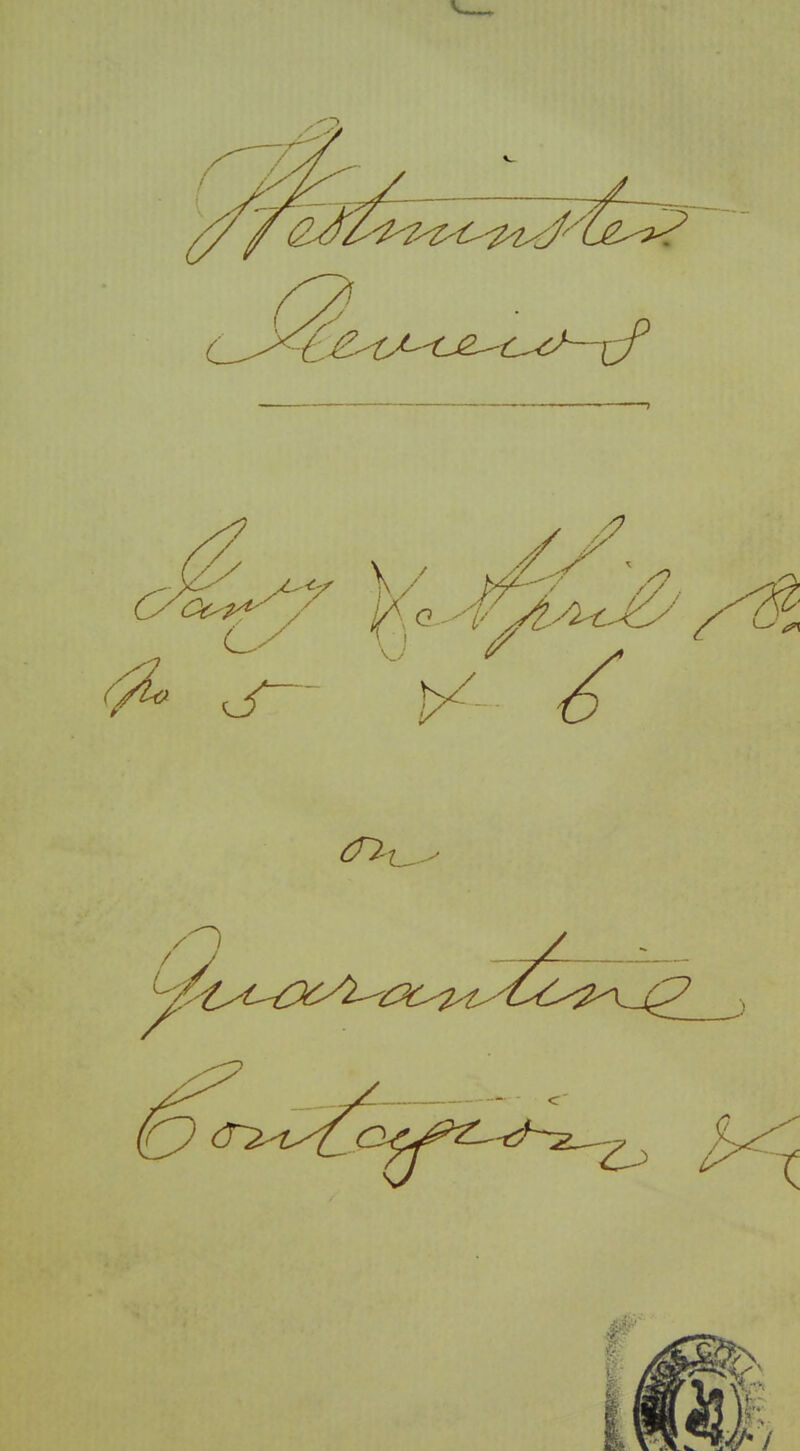 Westminster
Reviews
Jany & April 18
No 5 & 6
on
Quarantine
Contagion &c
COLL